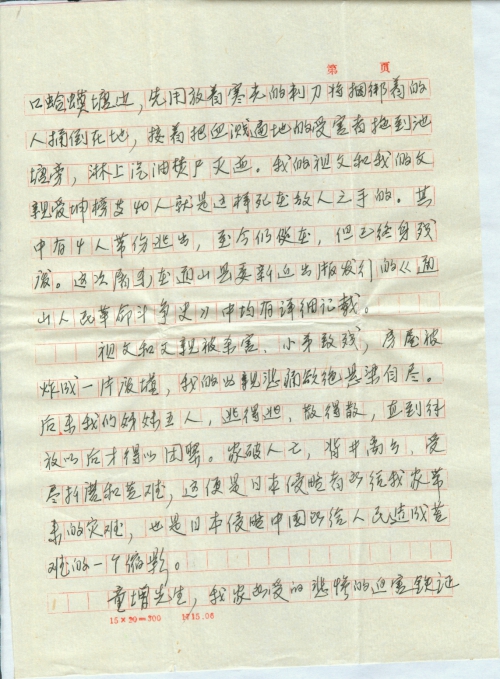 第 頁
口蛤蟆塘边，先用放着寒光的刺刀将捆绑着的
人捅倒在地，接着把血溅遍地的受害者拖到池
塘旁，淋上汽油焚尸灭迹。我的祖父和我的父
亲爱坤榜支40人就是这样死在敌人之手的。其
中有4人带伤逃出，至今仍健在，但已终身残
废。这次屠杀在通山县委新近出版发行的《通
山人民革命斗争史》中均有详细记载。
祖父和父亲被杀害，小弟致残，房屋被
炸成一片废墟，我的母亲悲痛欲绝悬梁自尽。
后来我们姊妹五人，逃得逃，散得散，直到解
放以后才得以团聚。家破人亡，背井离乡，受
尽折磨和苦难，这便是日本侵略者所给我家带
来的灾难，也是日本侵略中国所给人民造成苦
难的一个缩影。
童增先生，我家所受的悲惨的迫害铁证
15×20=300 1715.06